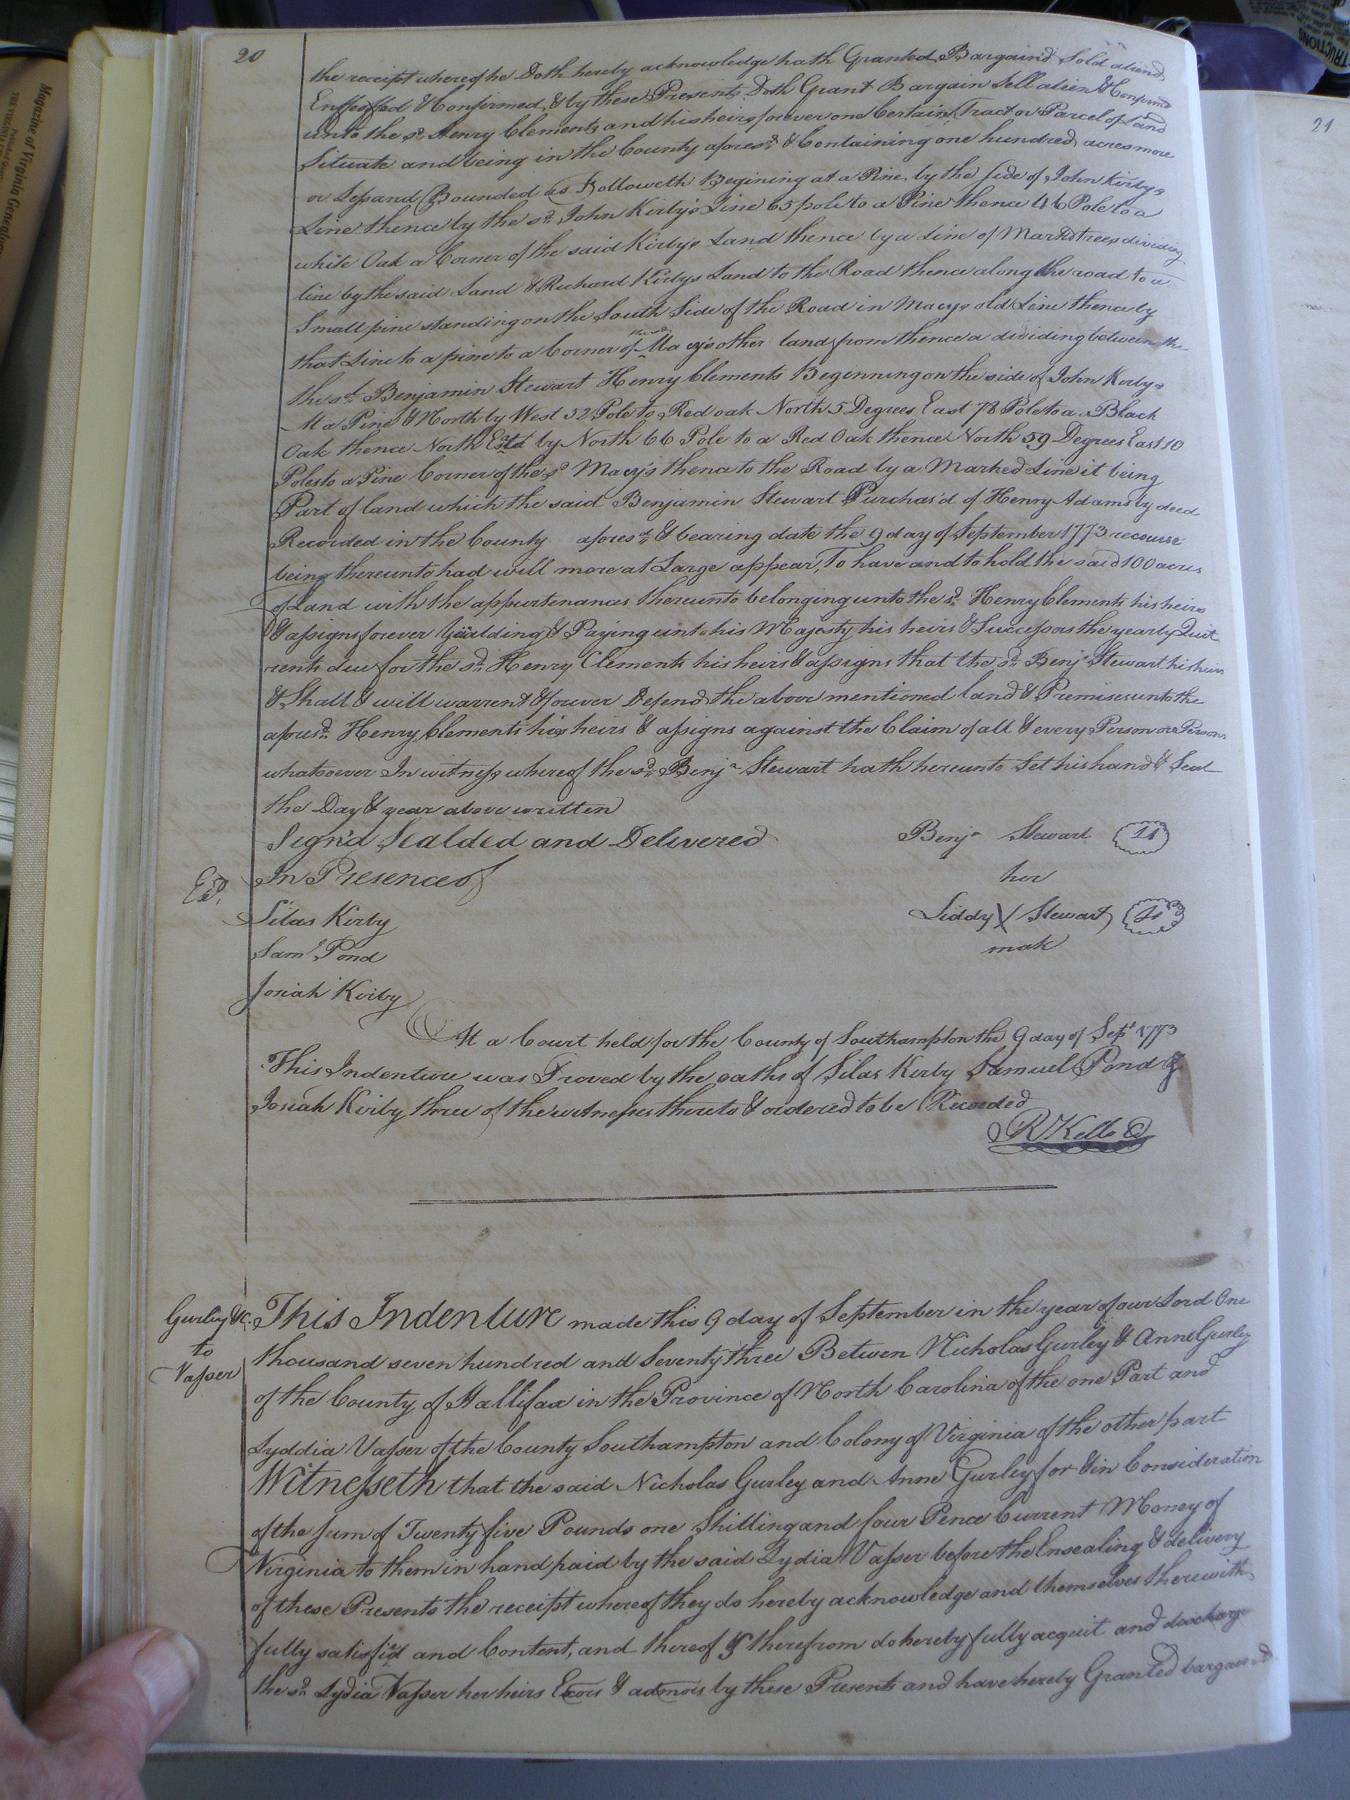 20
the receipt whereof he Doth hereby acknowledge hath Granted, Bargain'd Sold aliend
Enffeoffed & Confirmed, & by these Presents Doth Grant Bargain Sell alien & Confirm
unto the sd. Henry Clements and his heirs forever one Certain Tract or Parcel of Land
Situate and being in the County aforesd. & Containing one hundred acres more
or Less and Bounded as Followeth Begining at a Pine by the side of John Kirbys
Line thence by the sd. John Kirby's Line 65 pole to a Pine thence 46 Pole to a
white Oak a Corner of the said Kirbys Land thence by a line of Markd trees dividing
line by the said Land & Richard Kirbys Land to the Road thence along the road to a
Small pine standing on the South Side of the Road in Macys old Line thence by
that Line to a pine to a Corner of Macy's other land from thence a dividing between the
the sd. Benjamin Stewart Henry Clements Begenning on the side of John Kerbys
At a Pine & North by West 32 Pole to, Red oak North 5 Degrees East 78 Pole to a Black
Oak thence North by North 66 Pole to a Red Oak thence North 59 Degrees East 10
Poles to a Pine Corner of the sd Macy's thence to the Road by a Marked Line it being
Part of land which the said Benjamin Stewart Purchas'd of Henry Adams by deed
Recorded in the County aforesd. & bearing date the 9 day of September 1773 recourse
being thereunto had will more at Large appear, To have and to hold the said 100 acres
of Land with the appurtenances thereunto belonging unto the sd. Henry Clements his heirs
& assigns forever Yealding & Paying unto his Majesty his heirs & Successors the yearly Quit
rents due for the sd. Henry Clements his heirs & assigns that the sd. Benja Stewart his heirs
& Shall & will warrent & forever Defend the above mentioned land & Premises unto the
aforesd. Henry Clements his heirs & assigns against the Claim of all & every Person or Persons
whatsoever In witness whereof the sd. Benja Stewart hath hereunto Set his hand & Seal
the Day & year above written
Sign'd Sealded and Delivered Benja Stewart LS
In Presence of her
Exd.
Silas Kirby Liddy X Stewart LS
Saml Pond mak
Josiah Kirby
At a Court held for the County of Southampton the 9 day of Sept 1773
This Indenture was Proved by the oaths of Silas Kirby Samuel Pond &
Josiah Kirby three of the witnesses thereto & ordered to be Recorded
R Kello
This Indenture made this 9 day of September in the year of our Lord One
Gurley &c.
to
Vasser
thousand seven hundred and Seventy three Betwen Nicholas Gurley & Anne Gurley
of the County of Hallifax in the Province of North Carolina of the one Part and
Lyddia Vasser of the County Southampton and Colony of Virginia of the other part
Witnesseth that the said Nicholas Gurley and Anne Gurley for & in Consideration
of the Sum of Twenty five Pounds one Shilling and four Pence Current Money of
Virginia to them in hand paid by the said Lydia Vasser before the Ensealing & delivery
of these Presents the receipt whereof they do hereby acknowledge and themselves therewith
fully satisfi'd and Content, and thereof & therefrom do hereby fully acquit and discharge
the sd. Lydia Vasser her heirs Exors & admors by these Presents and have hereby Granted bargaind
21
Magazine of Virginia Genealogy